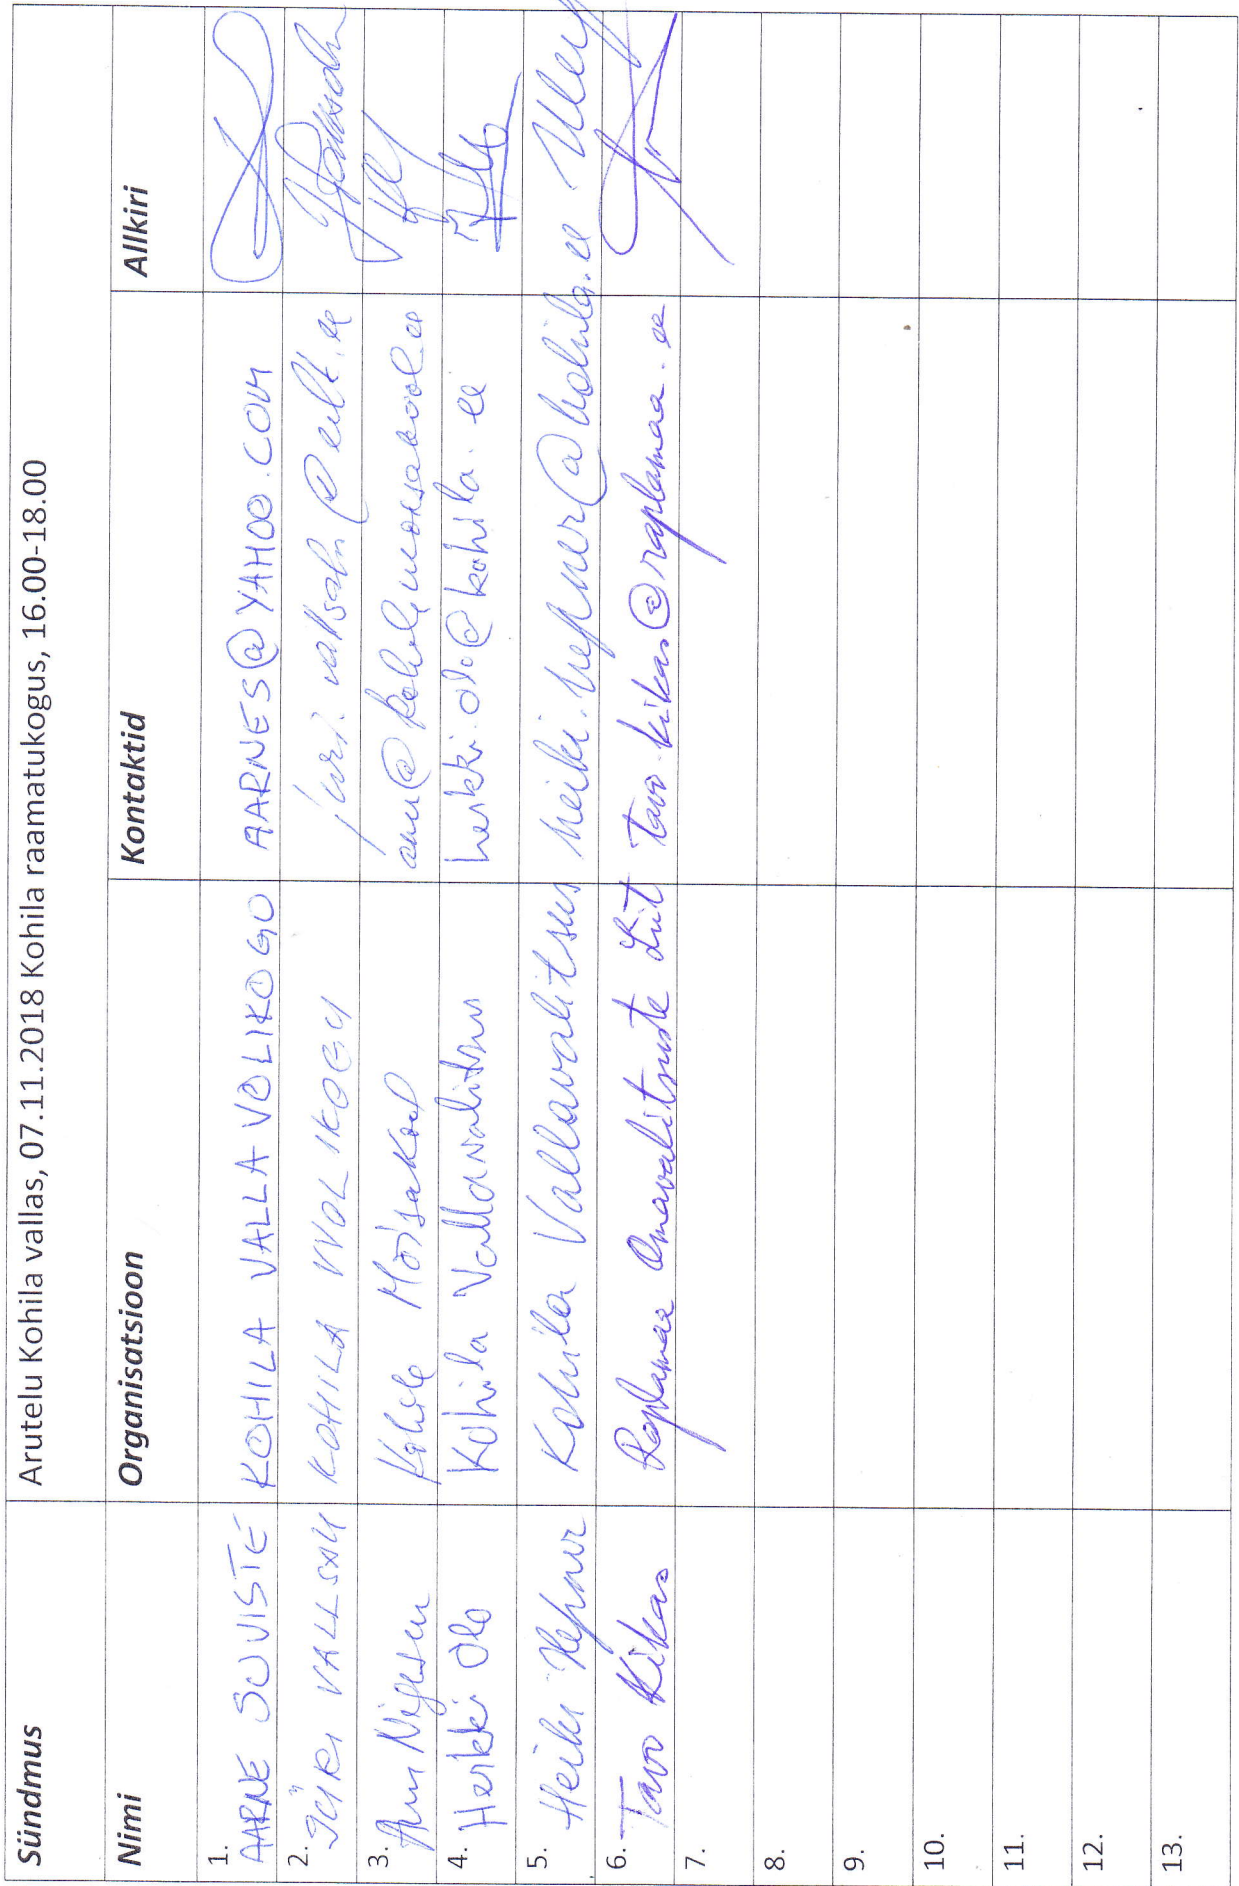 Sündmus Arutelu Kohila vallas, 07.11.2018 Kohila raamatukogus, 16.00-18.00
Nimi Organisatsioon Kontaktid Allkiri
1. AARNE SUVISTE KOHILA VALLA VOLIKOGO AARNES@YAHOO.COM
2. JÜRI VALLSALU KOHILA VVOLIKOGU
3. Kohila Mõisakool
4. Heikki Olo Kohila Vallavalitsus heikki.olo@kohila.ee
5. Heiki Hepner Kohila Vallavalitsus heiki.hepner@kohila.ee
6. Tavo Kikas Raplamaa Omavalitsuste Liit tavo.kikas@raplamaa.ee
7.
8.
9.
10.
11.
12.
13.